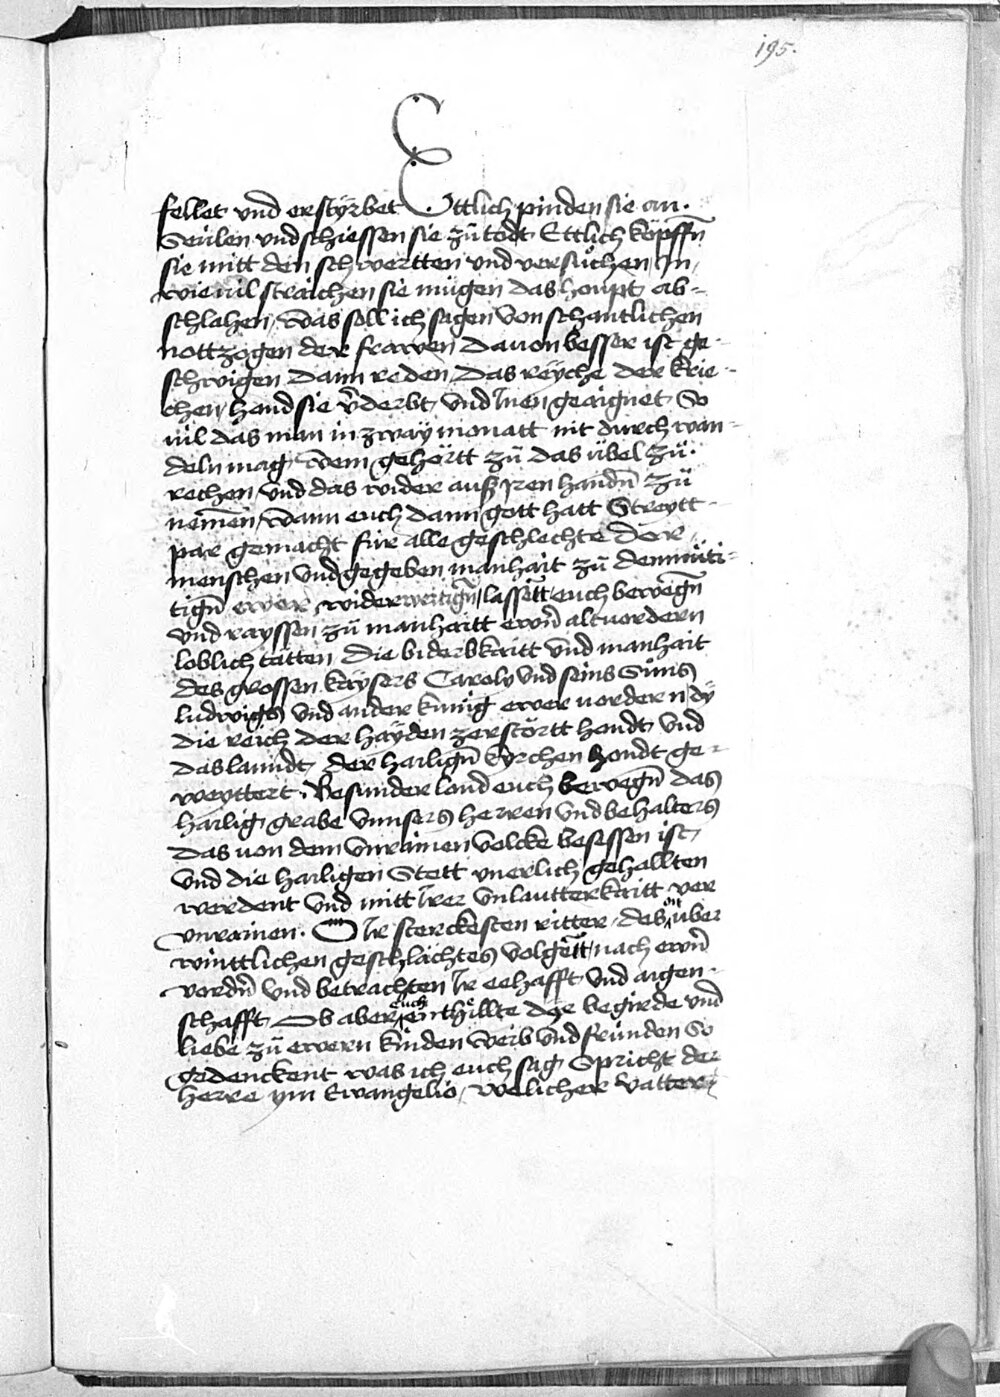 195.
fellet vnd erstyrbet Ettlich pinden sie an.
Seülen vnd schiessen sie zů todt Ettlich köpffn̄
sie mitt den schwertten vnd versůchen Jn
wie uil straichen sie mügen das houpt ab-
schlahen, Was soll ich sagen von schantlichen
nottzogen der frawen Dauon besser ist ge-
schwigen Dann reden Das reyche der krie-
chen hand sie v̄derbt vnd Jnen geaignet So
uil das man in zway monatt nit durch wan-
deln mag, Wem gehörtt zů das übel zů
rechen vnd das wider auß Jren handn̄ zů
nemen, Wann euch dann gott hatt Streytt-
par gemacht für alle geschlechte der
menschen vnd gegeben manhait zů demüti-
tign̄ ewer widerwrtign̄ lassett euch bewegn̄
vnd rayssen zů manhaitt ewr̄n altuordern
loblich tätten Die biderbkaitt vnd manhait
des grossen kaysers Caroly vnd seins Suns
ludwigs vnd ander künig ewer uordern dy
die reich der hayden zerstörtt handt vnd
das lanndt der hailign̄ kyrchen handt ge-
weyttert. Besunder land euch bewegn̄ das
hailig grabe vnnsers herren vnd behalters
das uon dem vnrainen volcke besessen ist
vnd die hailigen Stett vnerlich gehallten
werdent vnd mitt Jrer vnlautterkaitt ver
vnrainen. O Jr sterckesten ritter des vnüber
winttlichen geschlächtes volgett nach ewr̄n
vordn̄ vnd betrachten Jr eehafft vnd aigen-
schafft Ob aber euch enthillte dye begirde vnd
liebe zů ewern kinden weib vnd fründen So
gedenckent was ich euch sag Spricht der
herre ym Ewangelio, welicher vatter